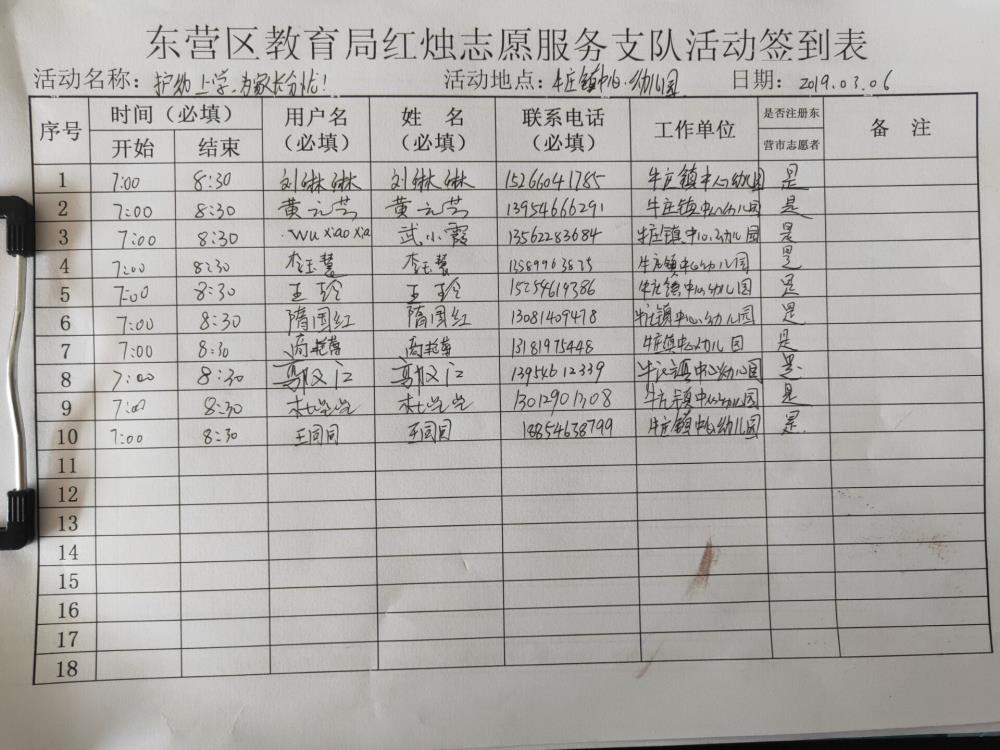 东营区教育局红烛志愿服务支队活动签到表
活动名称：护幼上学.为家长分忧！ 活动地点：牛庄镇中心幼儿园 日期：2019.03.06
序号 时间（必填） 用户名（必填） 姓名（必填） 联系电话（必填） 工作单位 是否注册东营市志愿者 备注
开始 结束
1 7:00 8:30 刘琳琳 刘琳琳 15266041785 牛庄镇中心幼儿园 是
2 7:00 8:30 黄元芸 黄元芸 13954666291 牛庄镇中心幼儿园 是
3 7:00 8:30 wuxiaoxia 武小霞 13562283684 牛庄镇中心幼儿园 是
4 7:00 8:30 李玉慧 李玉慧 牛庄镇中心幼儿园 是
5 7:00 8:30 王玲 王玲 15254619386 牛庄镇中心幼儿园 是
6 7:00 8:30 隋国红 隋国红 13081409478 牛庄镇中心幼儿园 是
7 7:00 8:30 13181975448 牛庄镇中心幼儿园 是
8 7:00 8:30 13954612339 牛庄镇中心幼儿园 是
9 7:00 8:30 杜学学 杜学学 13012901308 牛庄镇中心幼儿园 是
10 7:00 8:30 王同同 王同同 18854638799 牛庄镇中心幼儿园 是
11
12
13
14
15
16
17
18